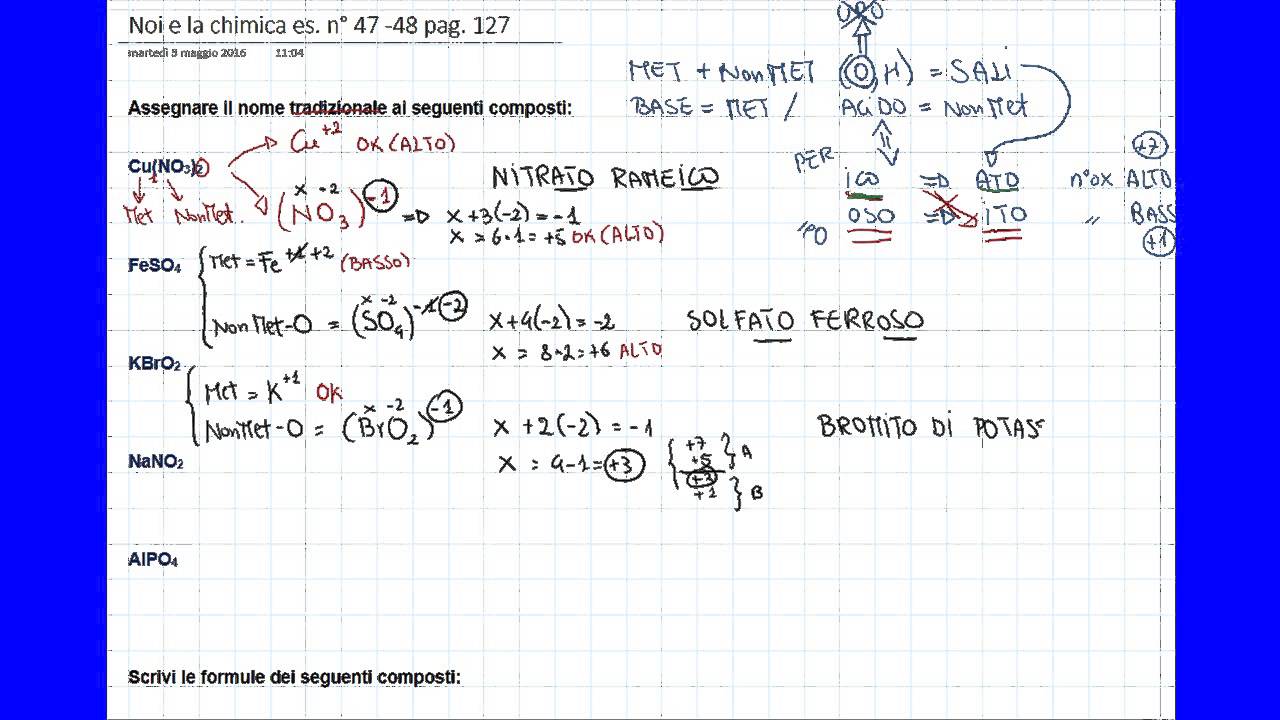 Noi e la chimica es. n° 47 -48 pag. 127
martedì 3 maggio 2016 11:04
MET + NonMET (O, H) = SALI
BASE = MET / ACIDO = NonMet
Assegnare il nome tradizionale ai seguenti composti:
Cu+2 OK (ALTO)
PER ICO => ATO n°ox ALTO +7
IPO OSO => ITO " BASS +1
Cu(NO3)2
NITRATO RAMEICO
Met NonMet.
(NO3)-1 x -2 => x+3(-2)=-1
x = 6-1=+5 OK (ALTO)
FeSO4
Met = Fe +1 +2 (BASSO)
NonMet-O = (SO4)-1 -2 x -2 x+4(-2)=-2
x = 8-2=+6 ALTO
SOLFATO FERROSO
KBrO2
Met = K+1 OK
NonMet-O = (BrO2)-1 x -2 x+2(-2)=-1
x = 4-1=+3
+7
+5 } A
+3
+1 } B
BROMITO DI POTASS
NaNO2
AlPO4
Scrivi le formule dei seguenti composti: